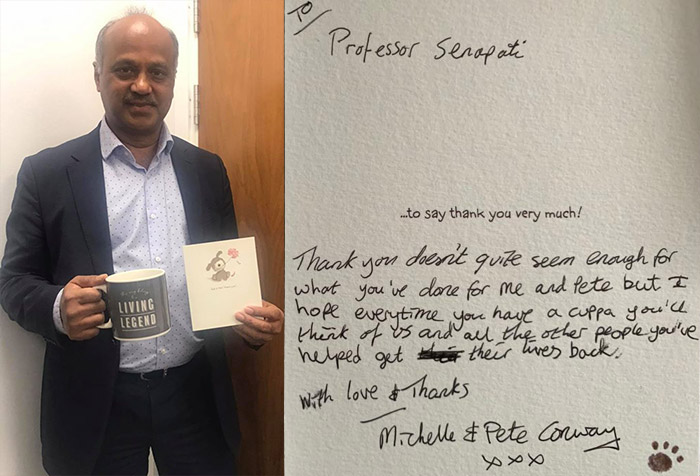 LIVING
LEGEND
To/
Professor Senapati
...to say thank you very much!
Thank you doesn't quite seem enough for
what you've done for me and Pete but I
hope everytime you have a cuppa you'll
think of us and all the other people you've
helped get their lives back.
With love & Thanks
Michelle & Pete Conway
xxx